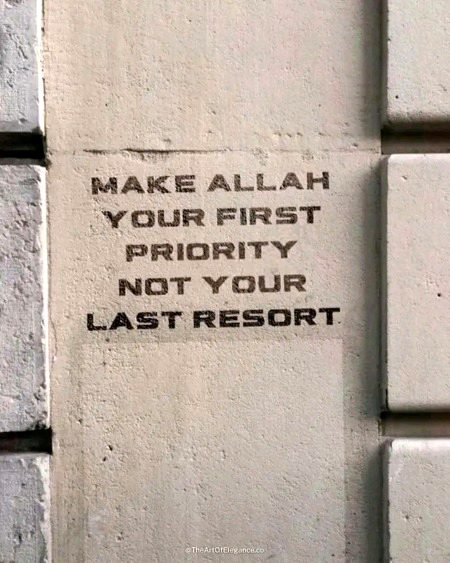 MAKE ALLAH
YOUR FIRST
PRIORITY
NOT YOUR
LAST RESORT
©TheArtOfElegance.co